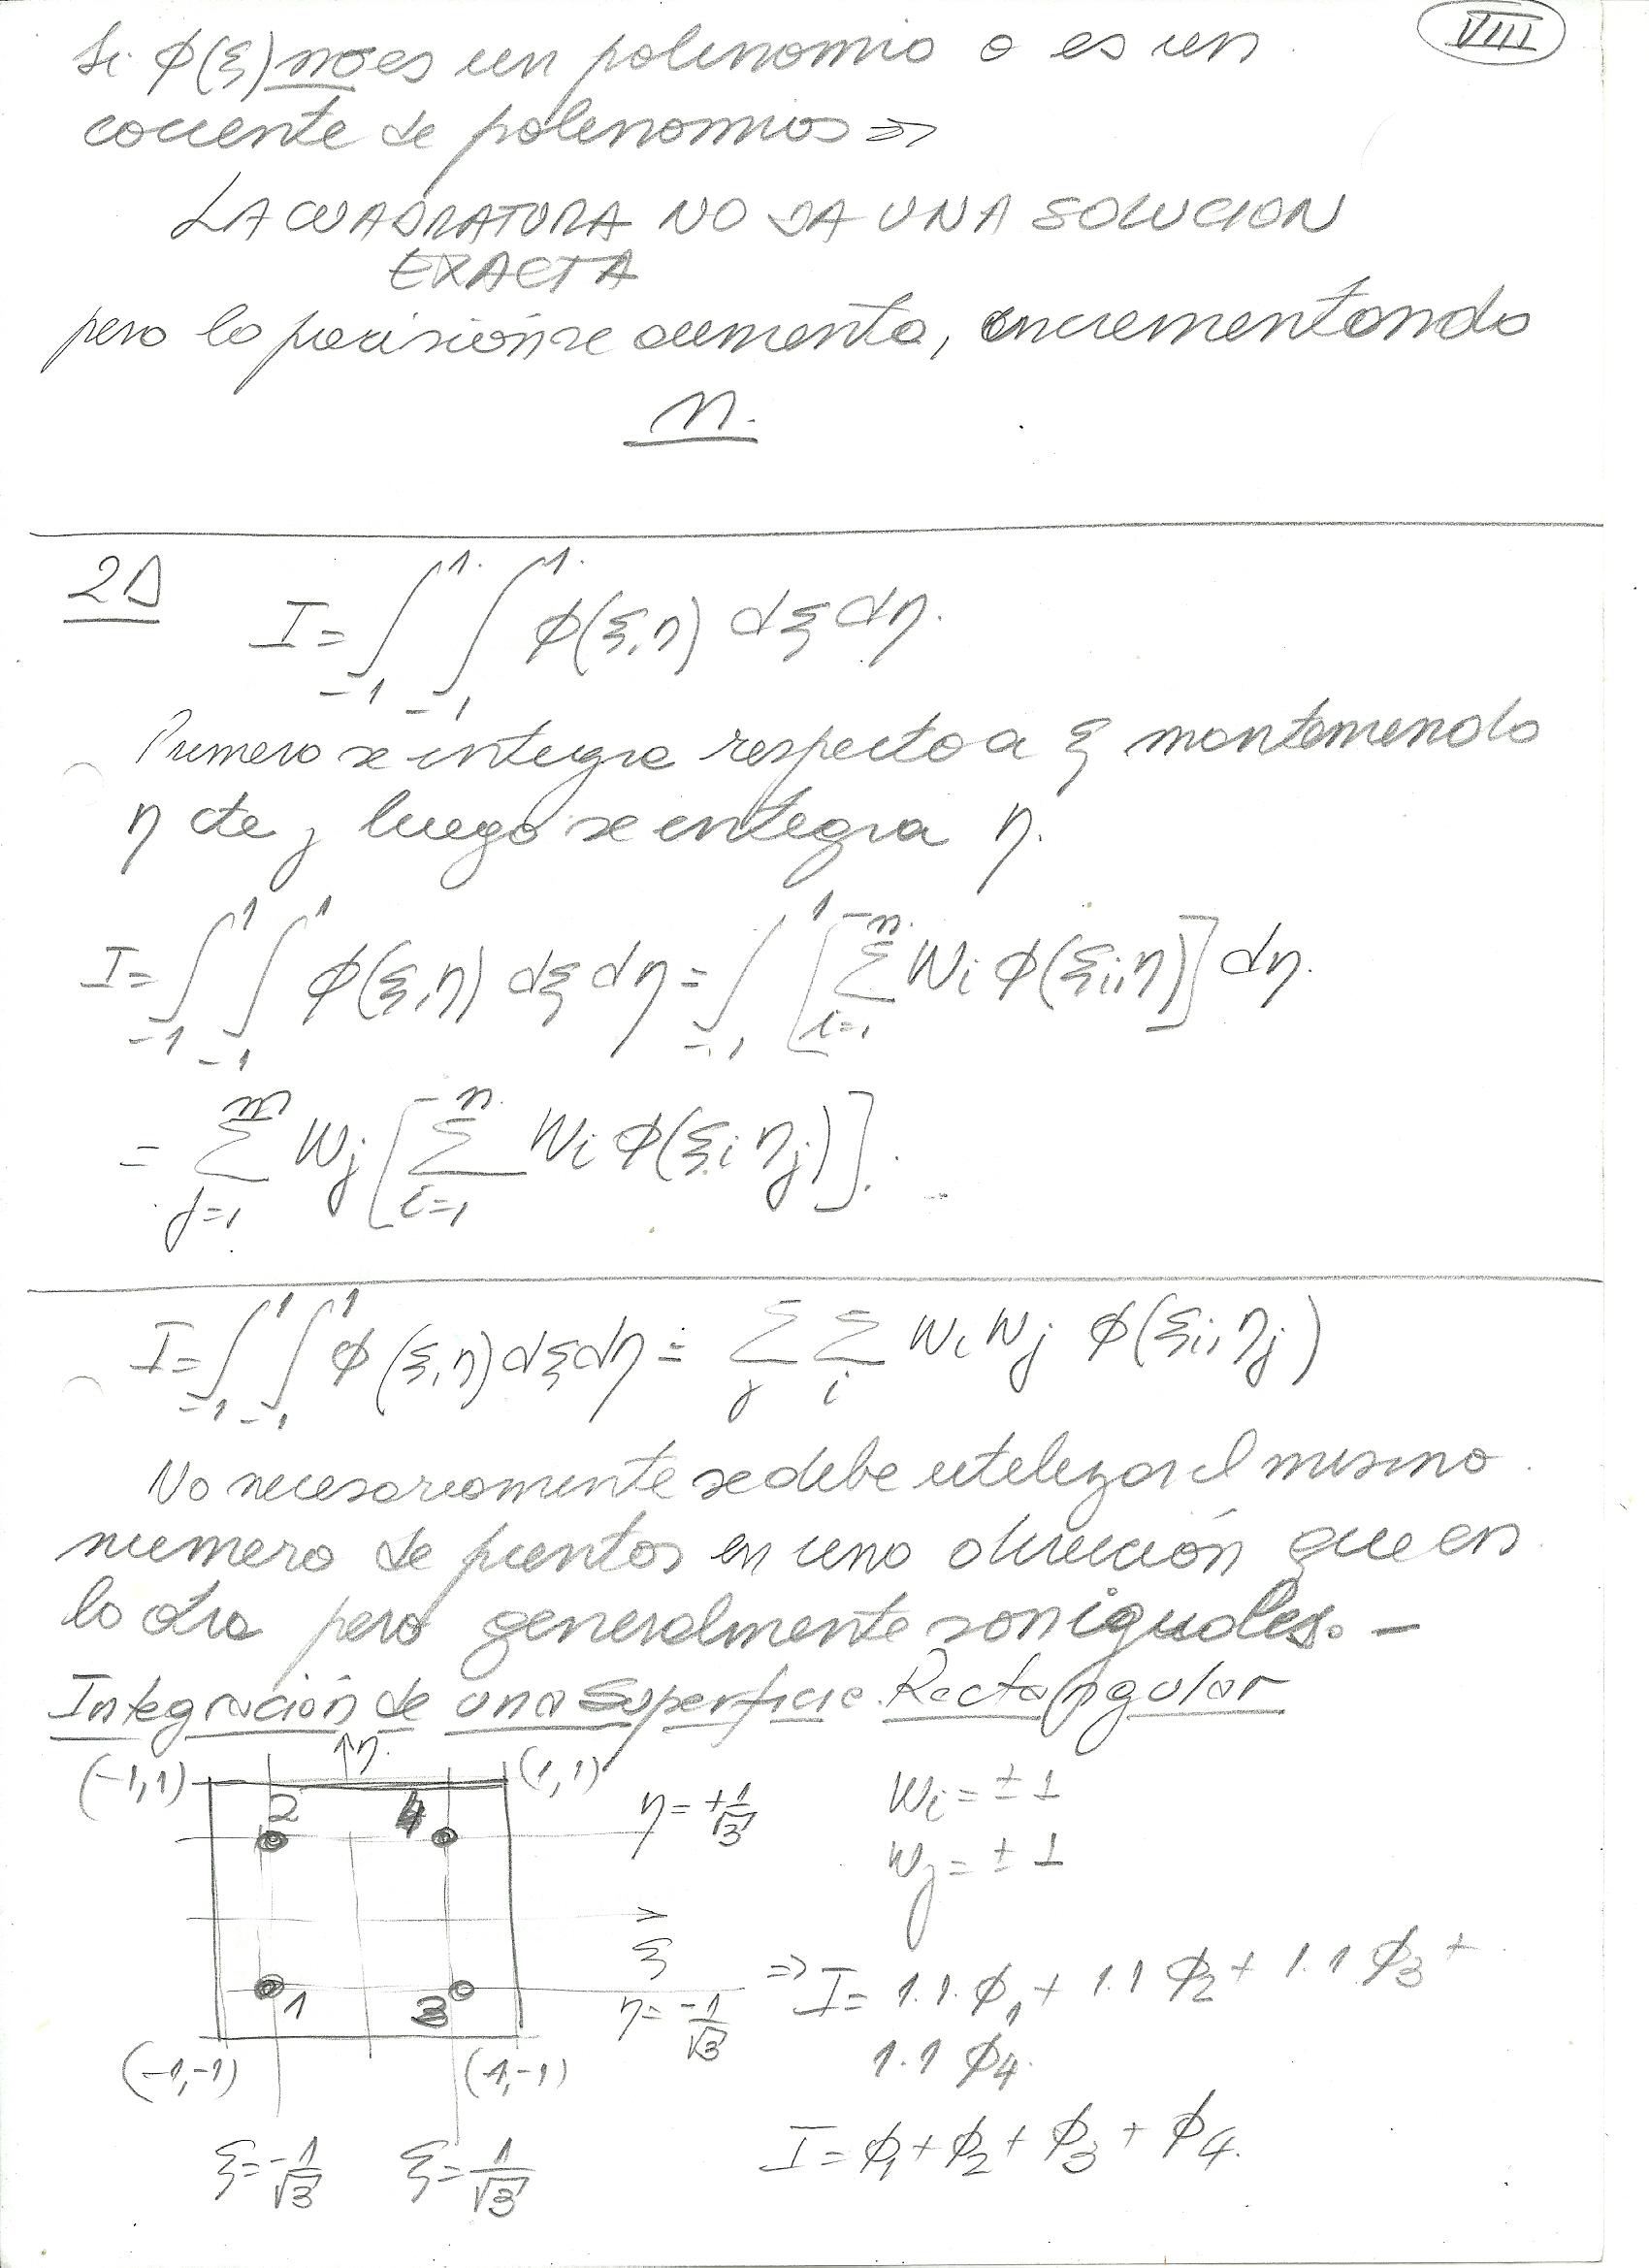 VIII
Si ϕ(ξ) no es un polinomio o es un
cociente de polinomios ⇒
LA CUADRATURA NO DA UNA SOLUCION
EXACTA
pero la precisión se aumenta, incrementando
n.
2D
I = ∫₋₁¹ ∫₋₁¹ ϕ(ξ,η) dξ dη.
Primero se integra respecto a ξ manteniendo
η cte y luego se integra η.
I = ∫₋₁¹ ∫₋₁¹ ϕ(ξ,η) dξ dη = ∫₋₁¹ [Σᵢ₌₁ⁿ Wi ϕ(ξi,η)] dη.
= Σⱼ₌₁ᵐ Wj [Σᵢ₌₁ⁿ Wi ϕ(ξi ηj)].
I = ∫₋₁¹ ∫₋₁¹ ϕ(ξ,η) dξ dη = Σj Σi Wi Wj ϕ(ξi,ηj)
No necesariamente se debe utilizar el mismo
numero de puntos en una dirección que en
la otra pero generalmente son iguales. –
Integración de una Superficie Rectangular
(-1,1) η (1,1)
2 4 η = +1/√3
Wi = ± 1
Wj = ± 1
ξ
1 3 η = -1/√3
⇒ I = 1.1.ϕ1 + 1.1 ϕ2 + 1.1 ϕ3 +
1.1 ϕ4.
(-1,-1) (1,-1)
ξ = -1/√3 ξ = 1/√3
I = ϕ1 + ϕ2 + ϕ3 + ϕ4.